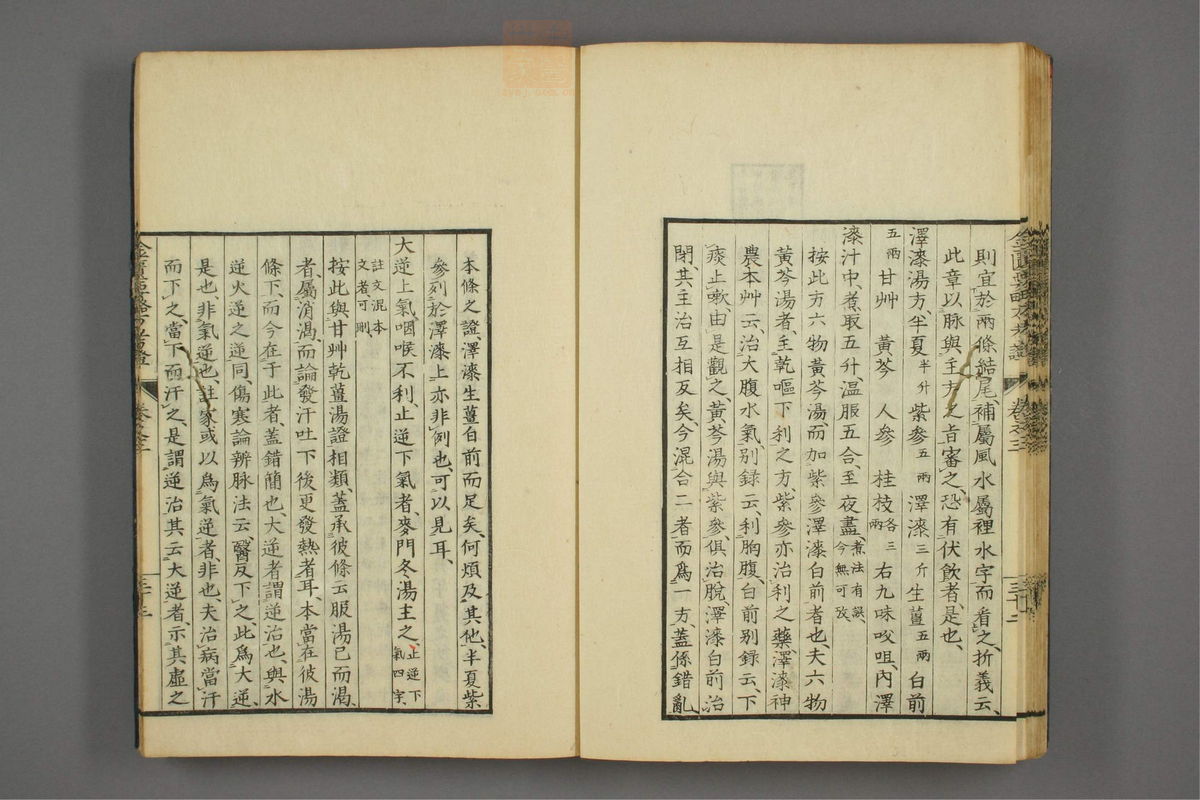 則宜於兩條結尾、補屬風水屬裡水字而看之、折義云、
此章以脉與主方之旨審之、恐有伏飮者、是也、
澤漆湯方、半夏半升紫參五兩澤漆三斤生薑五兩白前
五兩甘艸 黃芩 人參 桂枝各三兩右九味㕮咀、內澤
漆汁中、煮取五升温服五合、至夜盡、煮法有誤、今無可攷、
按此方六物黃芩湯、而加紫參澤漆白前者也、夫六物
黃芩湯者、主乾嘔下利之方、紫參亦治利之藥、澤漆神
農本艸云、治大腹水氣、別錄云、利胸腹、白前別錄云、下
痰止嗽、由是觀之、黃芩湯與紫參、俱治脫、澤漆白前治
閉、其主治互相反矣、今混合二者而爲一方、蓋係錯亂、
本條之證、澤漆生薑白前而足矣、何煩及其他、半夏紫
參列於澤漆上、亦非例也、可以見耳、
大逆上氣、咽喉不利止逆下氣者、麥門冬湯主之、止逆下氣四字、
註文混本文者可刪、
按此與甘艸乾薑湯證相類、蓋承彼條云服湯已而渴
者、屬消渴、而論發汗吐下後更發熱者耳、本當在彼湯
條下、而今在于此者、蓋錯簡也、大逆者謂逆治也、與水
逆火逆之逆同、傷寒論辨脉法云、醫反下之、此爲大逆、
是也、非氣逆也、註家或以爲氣逆者、非也、夫治病當汗
而下之、當下而汗之、是謂逆治、其云大逆者、示其虛之